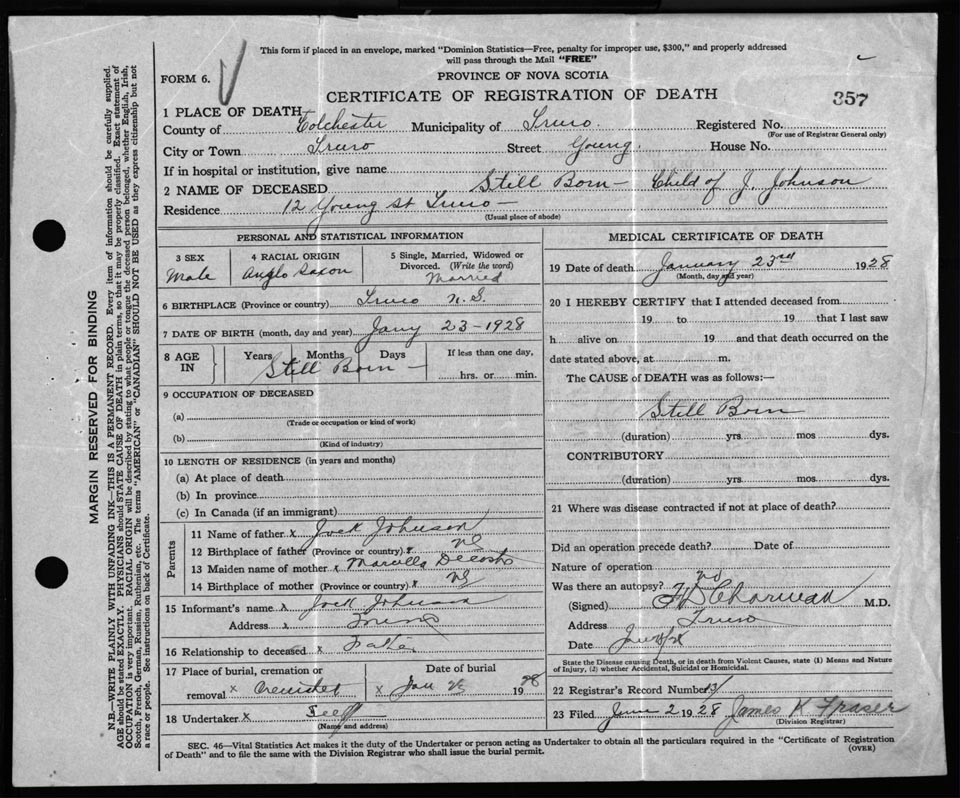 This form if placed in an envelope, marked "Dominion Statistics—Free, penalty for improper use, $300," and properly addressed
will pass through the Mail "FREE"
FORM 6.
PROVINCE OF NOVA SCOTIA
CERTIFICATE OF REGISTRATION OF DEATH
357
1 PLACE OF DEATH
County of Colchester Municipality of Truro. Registered No.
(For use of Registrar General only)
City or Town Truro Street Young. House No.
If in hospital or institution, give name
2 NAME OF DECEASED Still Born — Child of J. Johnson
Residence 12 Young St Truro —
(Usual place of abode)
PERSONAL AND STATISTICAL INFORMATION
3 SEX
Male
4 RACIAL ORIGIN
Anglo Saxon
5 Single, Married, Widowed or
Divorced. (Write the word)
Married
6 BIRTHPLACE (Province or country) Truro N.S.
7 DATE OF BIRTH (month, day and year) Jany 23-1928
8 AGE IN
Years Months Days If less than one day,
Still Born — hrs. or min.
9 OCCUPATION OF DECEASED
(a)
(Trade or occupation or kind of work)
(b)
(Kind of industry)
10 LENGTH OF RESIDENCE (in years and months)
(a) At place of death
(b) In province
(c) In Canada (if an immigrant)
Parents
11 Name of father x Jock Johnson
12 Birthplace of father (Province or country) x NS
13 Maiden name of mother x
14 Birthplace of mother (Province or country) x NS
15 Informant's name x Jock Johnson
Address x Truro
16 Relationship to deceased x Father
17 Place of burial, cremation or
removal x
Date of burial
x Jan 1928
18 Undertaker x
(Name and address)
MEDICAL CERTIFICATE OF DEATH
19 Date of death January 23rd 1928
(Month, day and year)
20 I HEREBY CERTIFY that I attended deceased from
19 to 19 that I last saw
h alive on 19 and that death occurred on the
date stated above, at m.
The CAUSE of DEATH was as follows:—
Still Born
(duration) yrs. mos dys.
CONTRIBUTORY
(duration) yrs. mos dys.
21 Where was disease contracted if not at place of death?
Did an operation precede death? Date of
Nature of operation
Was there an autopsy? no
(Signed) M.D.
Address Truro
Date
State the Disease causing Death, or in death from Violent Causes, state (1) Means and Nature
of Injury, (2) whether Accidental, Suicidal or Homicidal.
22 Registrar's Record Number
23 Filed June 2 1928 James K Fraser
(Division Registrar)
SEC. 46—Vital Statistics Act makes it the duty of the Undertaker or person acting as Undertaker to obtain all the particulars required in the "Certificate of Registration
of Death" and to file the same with the Division Registrar who shall issue the burial permit.
(OVER)
MARGIN RESERVED FOR BINDING
N.B.—WRITE PLAINLY WITH UNFADING INK—THIS IS A PERMANENT RECORD. Every item of information should be carefully supplied.
AGE should be stated EXACTLY. PHYSICIANS should STATE CAUSE OF DEATH in plain terms, so that it may be properly classified. Exact statement of
OCCUPATION is very important. RACIAL ORIGIN will be described by stating to what people or tongue the deceased person belonged, whether English, Irish,
Scotch, French, German, Russian, Ruthenian, etc. The terms "AMERICAN" or "CANADIAN" SHOULD NOT BE USED as they express citizenship but not
a race or people. See instructions on back of Certificate.